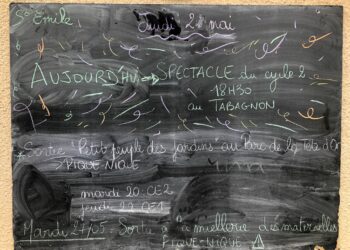 St Émile
Jeudi 2 mai
AUJOURD'HUI → SPECTACLE du cycle 2
18H30
au TABAGNON
Sortie "Petit peuple des jardins" au Parc de la Tête d'Or
PIQUE NIQUE
mardi 20: CE2
jeudi 22: CE1
Mardi 27/05: Sortie à la miellerie des maternelles
PIQUE-NIQUE ⚠